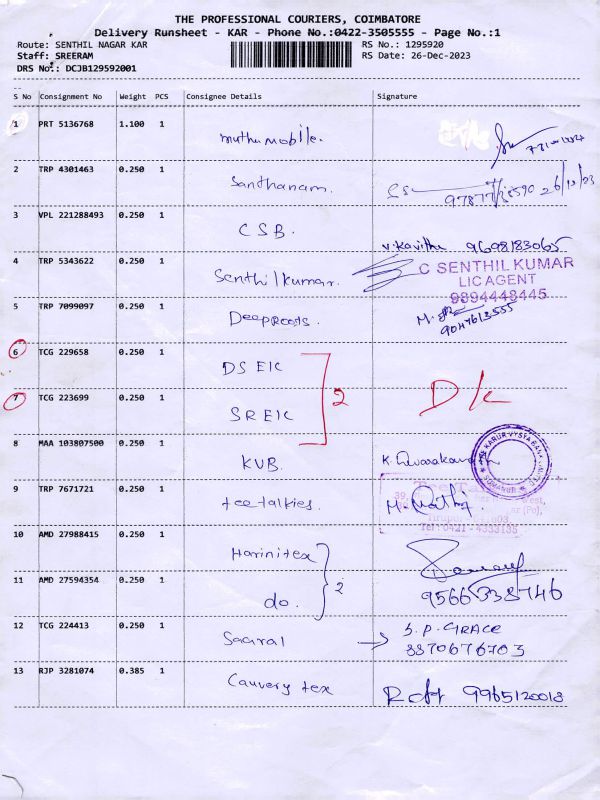 THE PROFESSIONAL COURIERS, COIMBATORE
Delivery Runsheet - KAR - Phone No.:0422-3505555 - Page No.:1
Route: SENTHIL NAGAR KAR RS No.: 1295920
Staff: SREERAM RS Date: 26-Dec-2023
DRS No.: DCJB129592001
S No Consignment No Weight PCS Consignee Details Signature
1 PRT 5136768 1.100 1 muthu mobile.
2 TRP 4301463 0.250 1 Santhanam. 26/12/23
3 VPL 221288493 0.250 1 CSB. V. Kavitha 9698183065
4 TRP 5343622 0.250 1 Senthilkumar. C SENTHIL KUMAR
LIC AGENT
9894448445
5 TRP 7099097 0.250 1 Deeproots. 9047613555
6 TCG 229658 0.250 1 DS EIC
7 TCG 223699 0.250 1 SR EIC 2 D/c
8 MAA 103807500 0.250 1 KVB. K.
9 TRP 7671721 0.250 1 tee talkies. M.
Tel : 0421 - 4333135
10 AMD 27988415 0.250 1 Harinitex
11 AMD 27594354 0.250 1 do. 2 9566338746
12 TCG 224413 0.250 1 S.P. GRACE
8870676703
13 RJP 3281074 0.385 1 Cauvery tex 9965120018